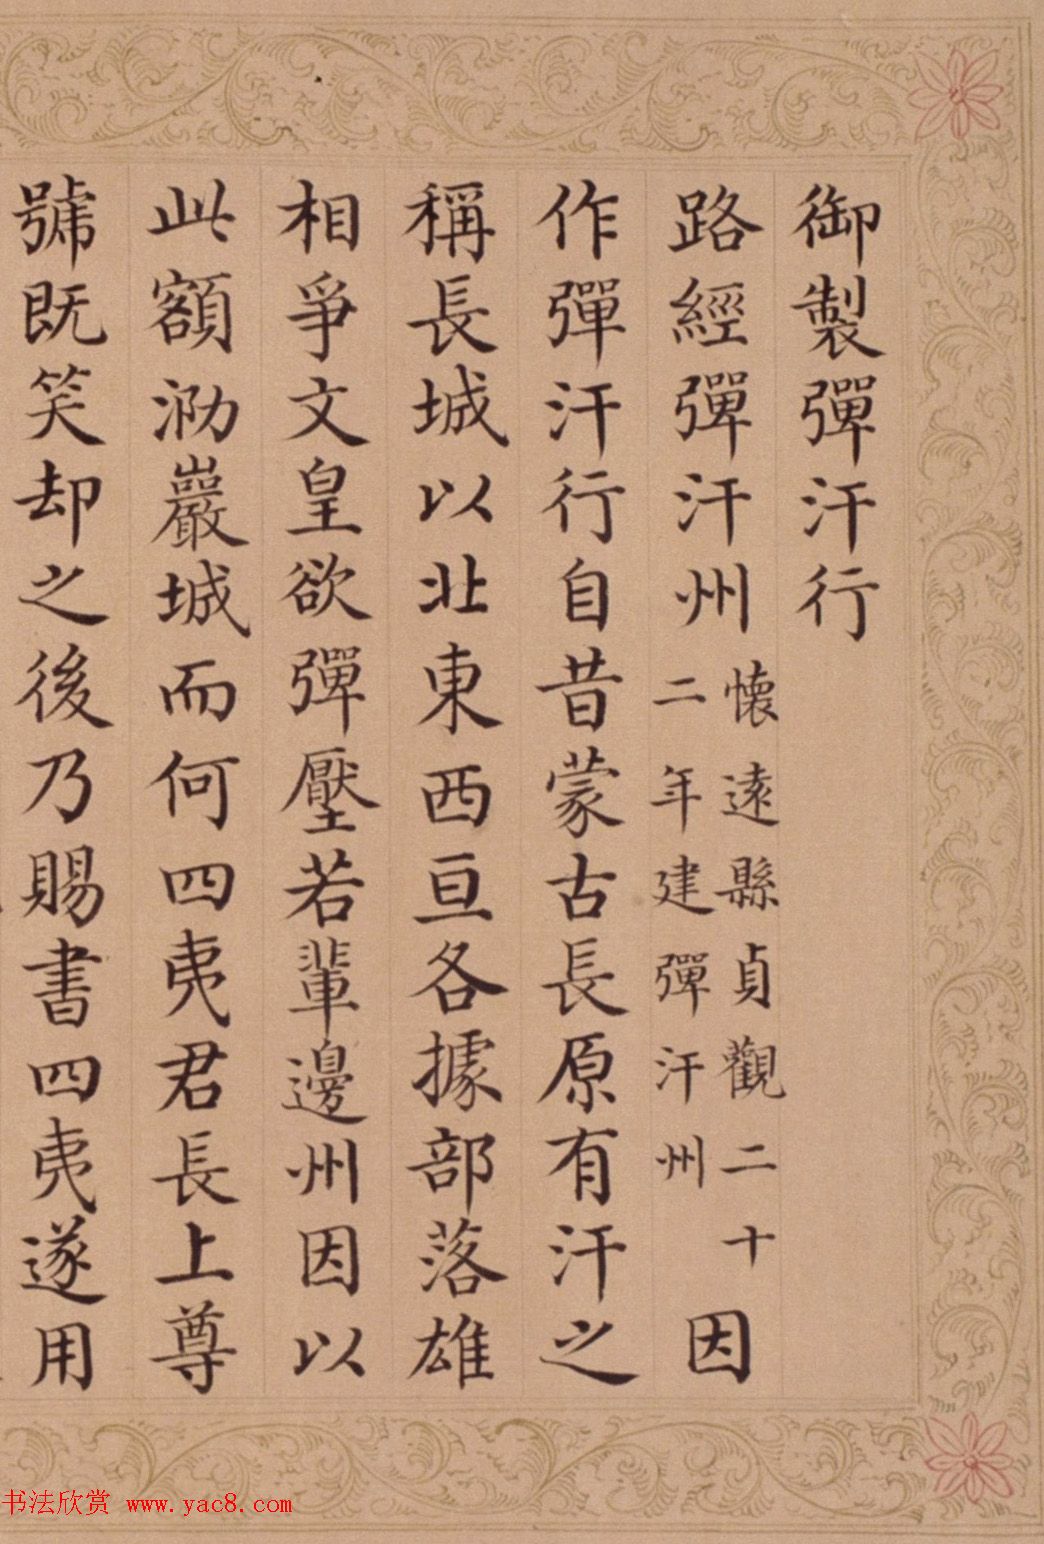 御製彈汗行
路經彈汗州懷遠縣貞觀二十二年建彈汗州因
作彈汗行自昔蒙古長原有汗之
稱長城以北東西亘各據部落雄
相爭文皇欲彈壓若輩邊州因以
此額泐巖城而何四夷君長上尊
號既笑却之後乃賜書四夷遂用
书法欣赏 www.yac8.com